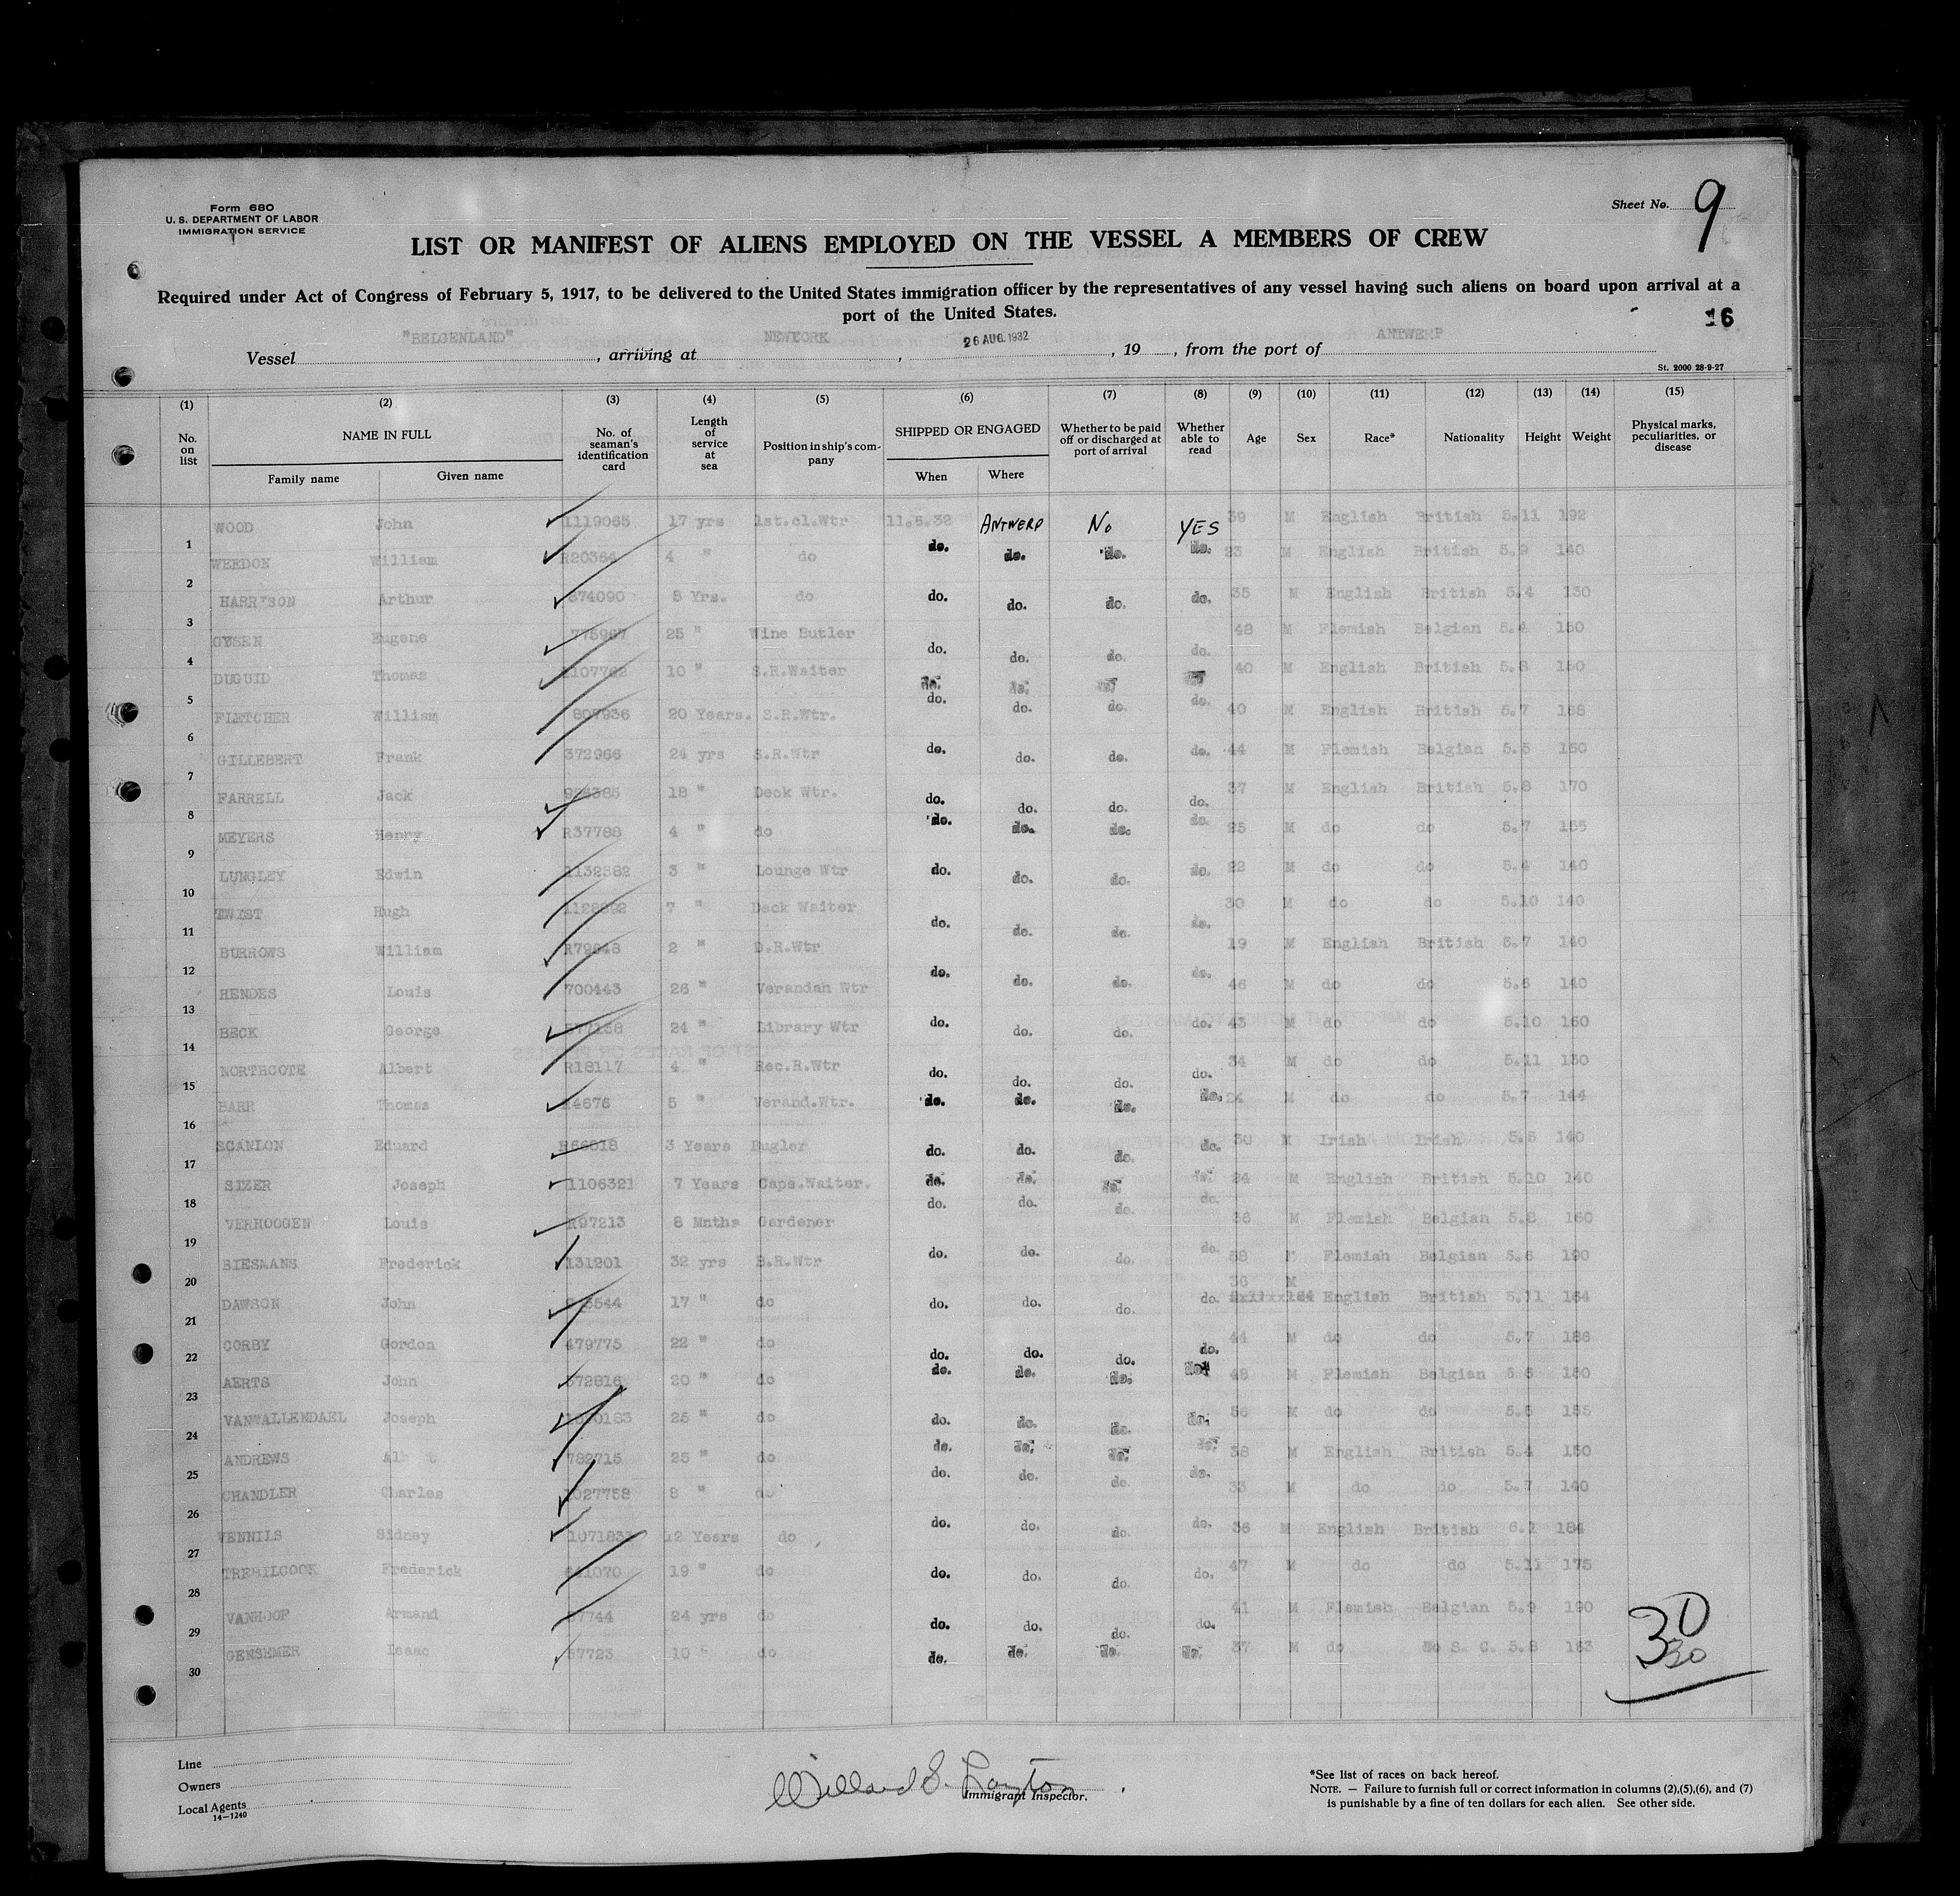 Form 680
U. S. DEPARTMENT OF LABOR
IMMIGRATION SERVICE
Sheet No. 9
LIST OR MANIFEST OF ALIENS EMPLOYED ON THE VESSEL A MEMBERS OF CREW
Required under Act of Congress of February 5, 1917, to be delivered to the United States immigration officer by the representatives of any vessel having such aliens on board upon arrival at a
port of the United States.
16
Vessel "BELGENLAND", arriving at NEWYORK, 26 AUG. 1932, 19, from the port of ANTWERP
St. 2000 28-9-27
(1) (2) (3) (4) (5) (6) (7) (8) (9) (10) (11) (12) (13) (14) (15)
No. on list NAME IN FULL No. of seaman's identification card Length of service at sea Position in ship's company SHIPPED OR ENGAGED Whether to be paid off or discharged at port of arrival Whether able to read Age Sex Race* Nationality Height Weight Physical marks, peculiarities, or disease
Family name Given name When Where
1 WOOD John 1119065 17 yrs 1st.cl.Wtr 11.5.32 ANTWERP No YES 39 M English British 5.11 192
2 WEEDON William R20364 4 " do do. do. do. do. 23 M English British 5.9 140
3 HARRISON Arthur 874090 8 Yrs. do do. do. do. do. 35 M English British 5.4 130
4 GYSEN Eugene 25 " Wine Butler do. do. do. do. 48 M Flemish Belgian 5.4 150
5 DUGUID Thomas 10 " S.R.Waiter do. do. 40 M English British 5.8 150
6 FLETCHER William 807936 20 Years. S.R.Wtr. do. do. do. do. 40 M English British 5.7 168
7 GILLEBERT Frank 372966 24 yrs S.R.Wtr do. do. do. do. 44 M Flemish Belgian 5.5 160
8 FARRELL Jack 18 " Deck Wtr. do. do. do. do. 37 M English British 5.8 170
9 MEYERS Henry R37788 4 " do do. do. do. do. 25 M do do 5.7 155
10 LUNGLEY Edwin 1132582 3 " Lounge Wtr do. do. do. do. 22 M do do 5.4 140
11 TWIST Hugh 7 " Deck Waiter do. do. do. do. 30 M do do 5.10 140
12 BURROWS William 2 " D.R.Wtr do. do. do. do. 19 M English British 5.7 140
13 HENDES Louis 700443 26 " Verandah Wtr do. do. do. do. 46 M do do 5.6 140
14 BECK George 24 " Library Wtr do. do. do. do. 43 M do do 5.10 160
15 NORTHCOTE Albert R18117 4 " Rec.R.Wtr do. do. do. do. 34 M do do 5.11 130
16 BARR Thomas 5 " Verand.Wtr. do. do. do. do. 24 M do do 5.7 144
17 SCANLON Eduard R66018 3 Years Bugler do. do. do. do. 30 M Irish Irish 5.6 140
18 SIZER Joseph 1106321 7 Years Caps.Waiter. do. do. do. do. 24 M English British 5.10 140
19 VERHOOGEN Louis R97213 8 Mnths Gardener do. do. do. do. 36 M Flemish Belgian 5.8 160
20 BIESMANS Frederick 131201 32 yrs B.R.Wtr do. do. do. do. 58 M Flemish Belgian 5.6 190
36 M
21 DAWSON John 17 " do do. do. do. do. English British 5.11 164
22 CORBY Gordon 479775 22 " do do. do. do. do. 44 M do do 5.7 186
23 AERTS John 672816 20 " do do. do. do. do. 49 M Flemish Belgian 5.6 150
24 VANWALLENDAEL Joseph 25 " do do. do. do. do. 56 M do do 5.5 155
25 ANDREWS 782715 25 " do do. do. do. do. 38 M English British 5.4 150
26 CHANDLER Charles 1027758 8 " do do. do. do. do. 33 M do do 5.7 140
27 VENNILS Sidney 12 Years do do. do. do. do. 36 M English British 6.1 184
28 TREHILCOOK Frederick 19 " do do. do. do. do. 47 M do do 5.11 175
29 VANHOOF Armand 24 yrs do do. do. do. do. 41 M Flemish Belgian 5.9 190
30 GENSEMER Isaac 57723 10 " do do. do. do. do. 37 M do No S. C. 5.8 163
30
30
Line
Owners
Local Agents
14—1240
Willard S. Layton
Immigrant Inspector.
*See list of races on back hereof.
NOTE. — Failure to furnish full or correct information in columns (2),(5),(6), and (7)
is punishable by a fine of ten dollars for each alien. See other side.